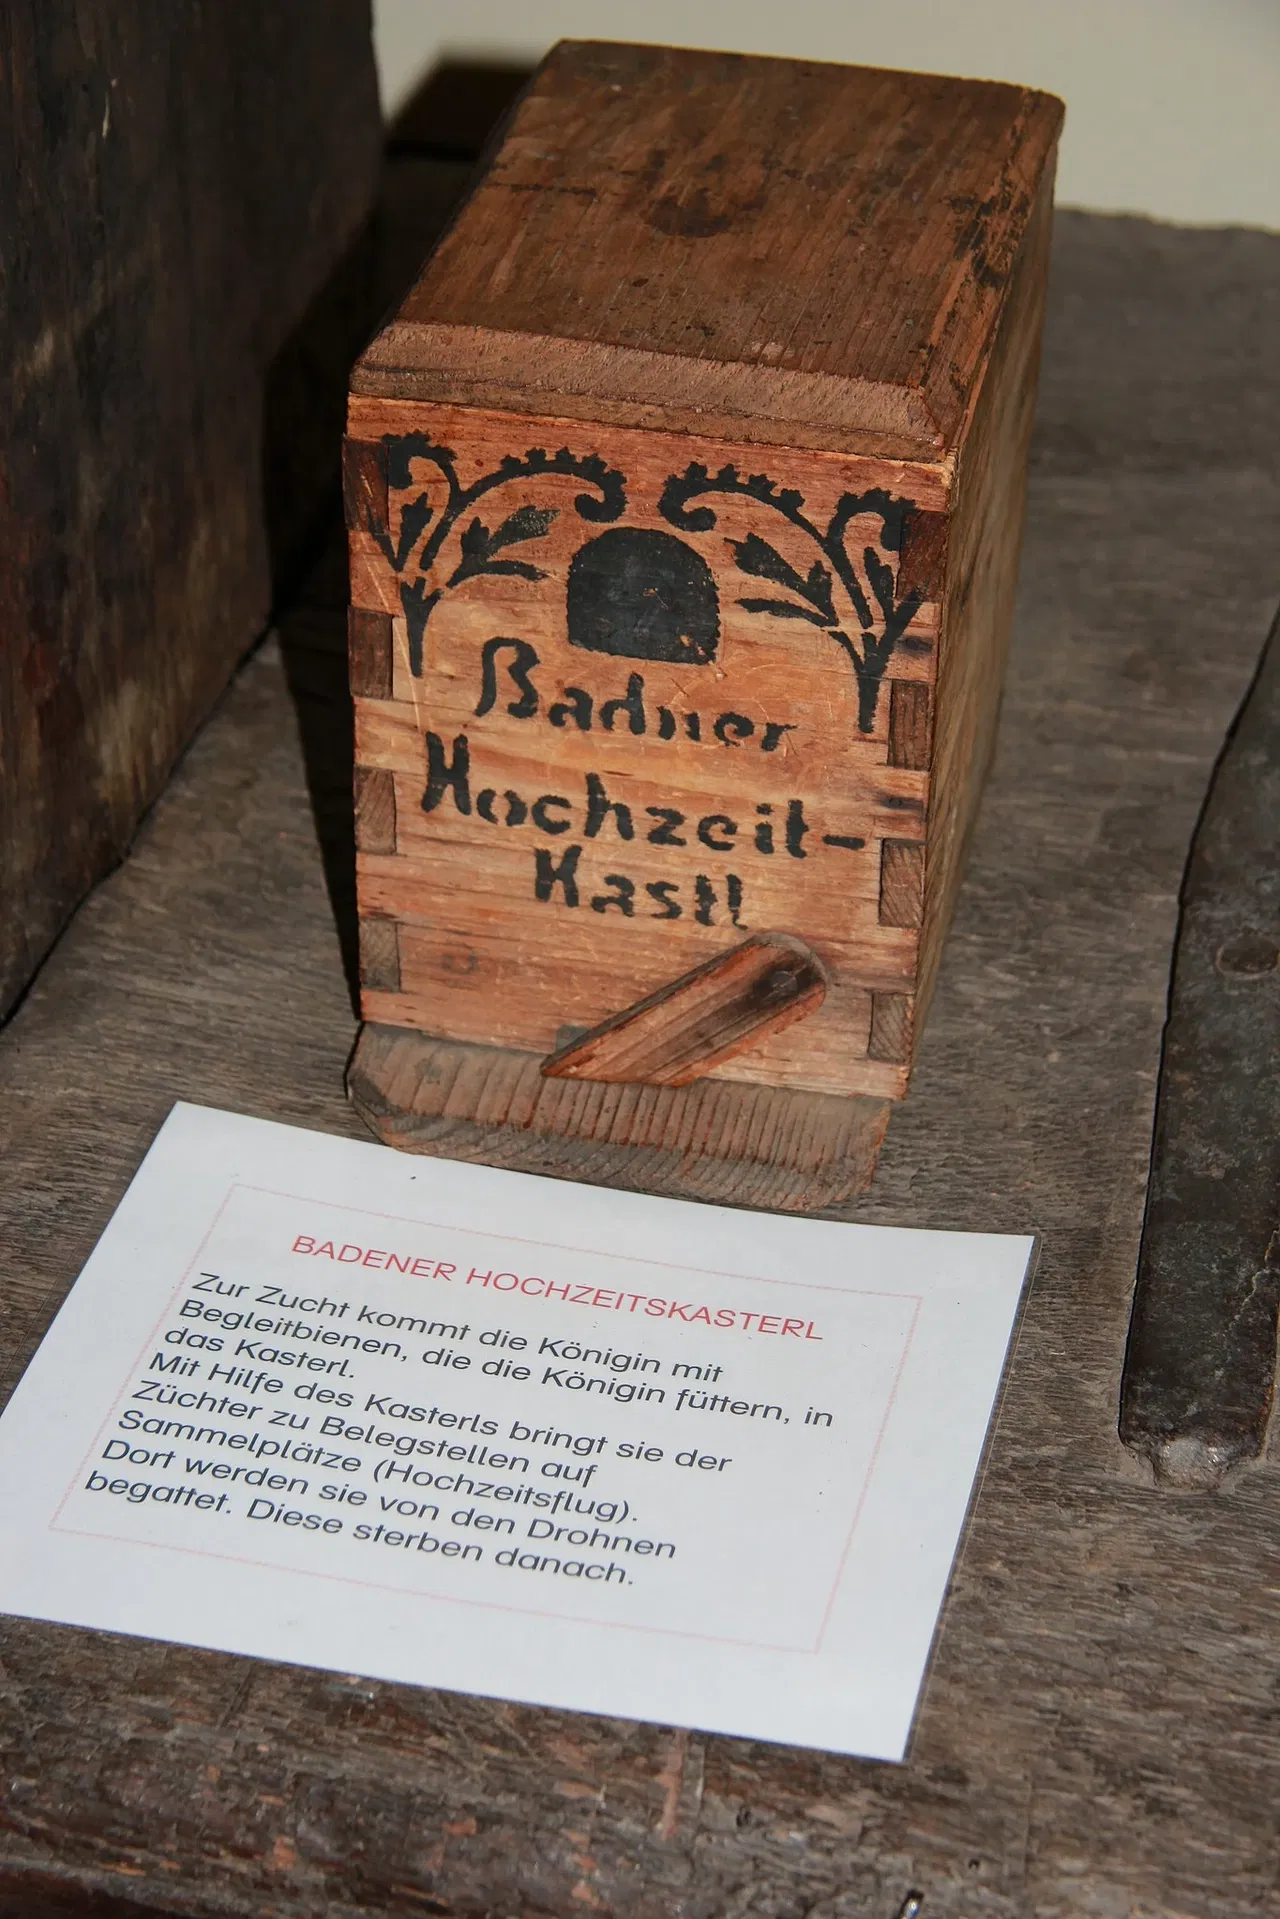 Badner
Hochzeit-
Kastl
BADENER HOCHZEITSKASTERL
Zur Zucht kommt die Königin mit
Begleitbienen, die die Königin füttern, in
das Kasterl.
Mit Hilfe des Kasterls bringt sie der
Züchter zu Belegstellen auf
Sammelplätze (Hochzeitsflug).
Dort werden sie von den Drohnen
begattet. Diese sterben danach.